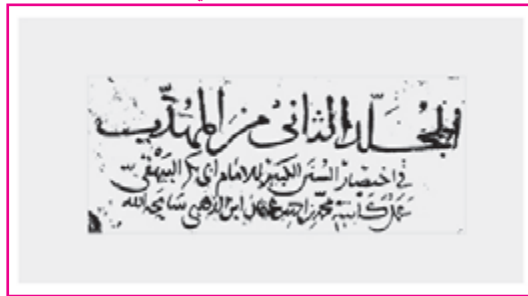 المجلد الثانى من المهذب
فى اختصار السنن الكبير للامام ابى بكر البيهقى
عمل كاتبه محمد بن احمد بن عثمان ابن الذهبى سامحه الله